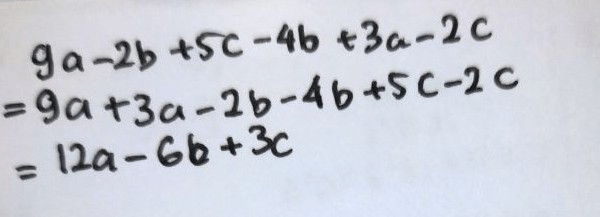 9a-2b+5c-4b+3a-2c
=9a+3a-2b-4b+5c-2c
=12a-6b+3c